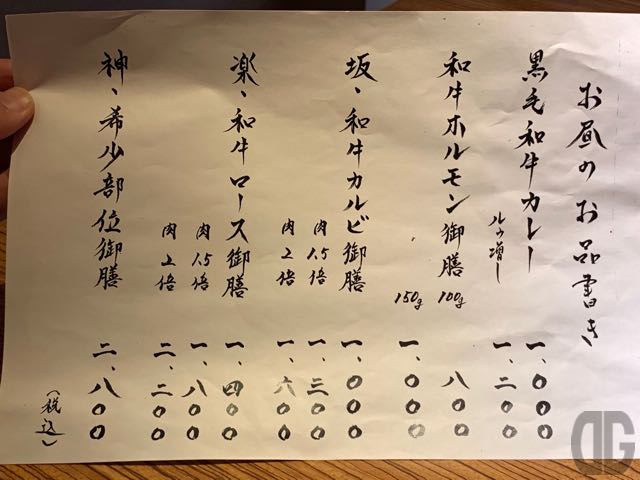 お昼のお品書き
黒毛和牛カレー 一、〇〇〇
ルゥ増し 一、二〇〇
和牛ホルモン御膳 100g 八〇〇
150g 一、〇〇〇
坂、和牛カルビ御膳 一、〇〇〇
肉1.5倍 一、三〇〇
肉2倍 一、六〇〇
楽、和牛ロース御膳 一、四〇〇
肉1.5倍 一、八〇〇
肉2倍 二、二〇〇
神、希少部位御膳 二、八〇〇
(税込)
DG